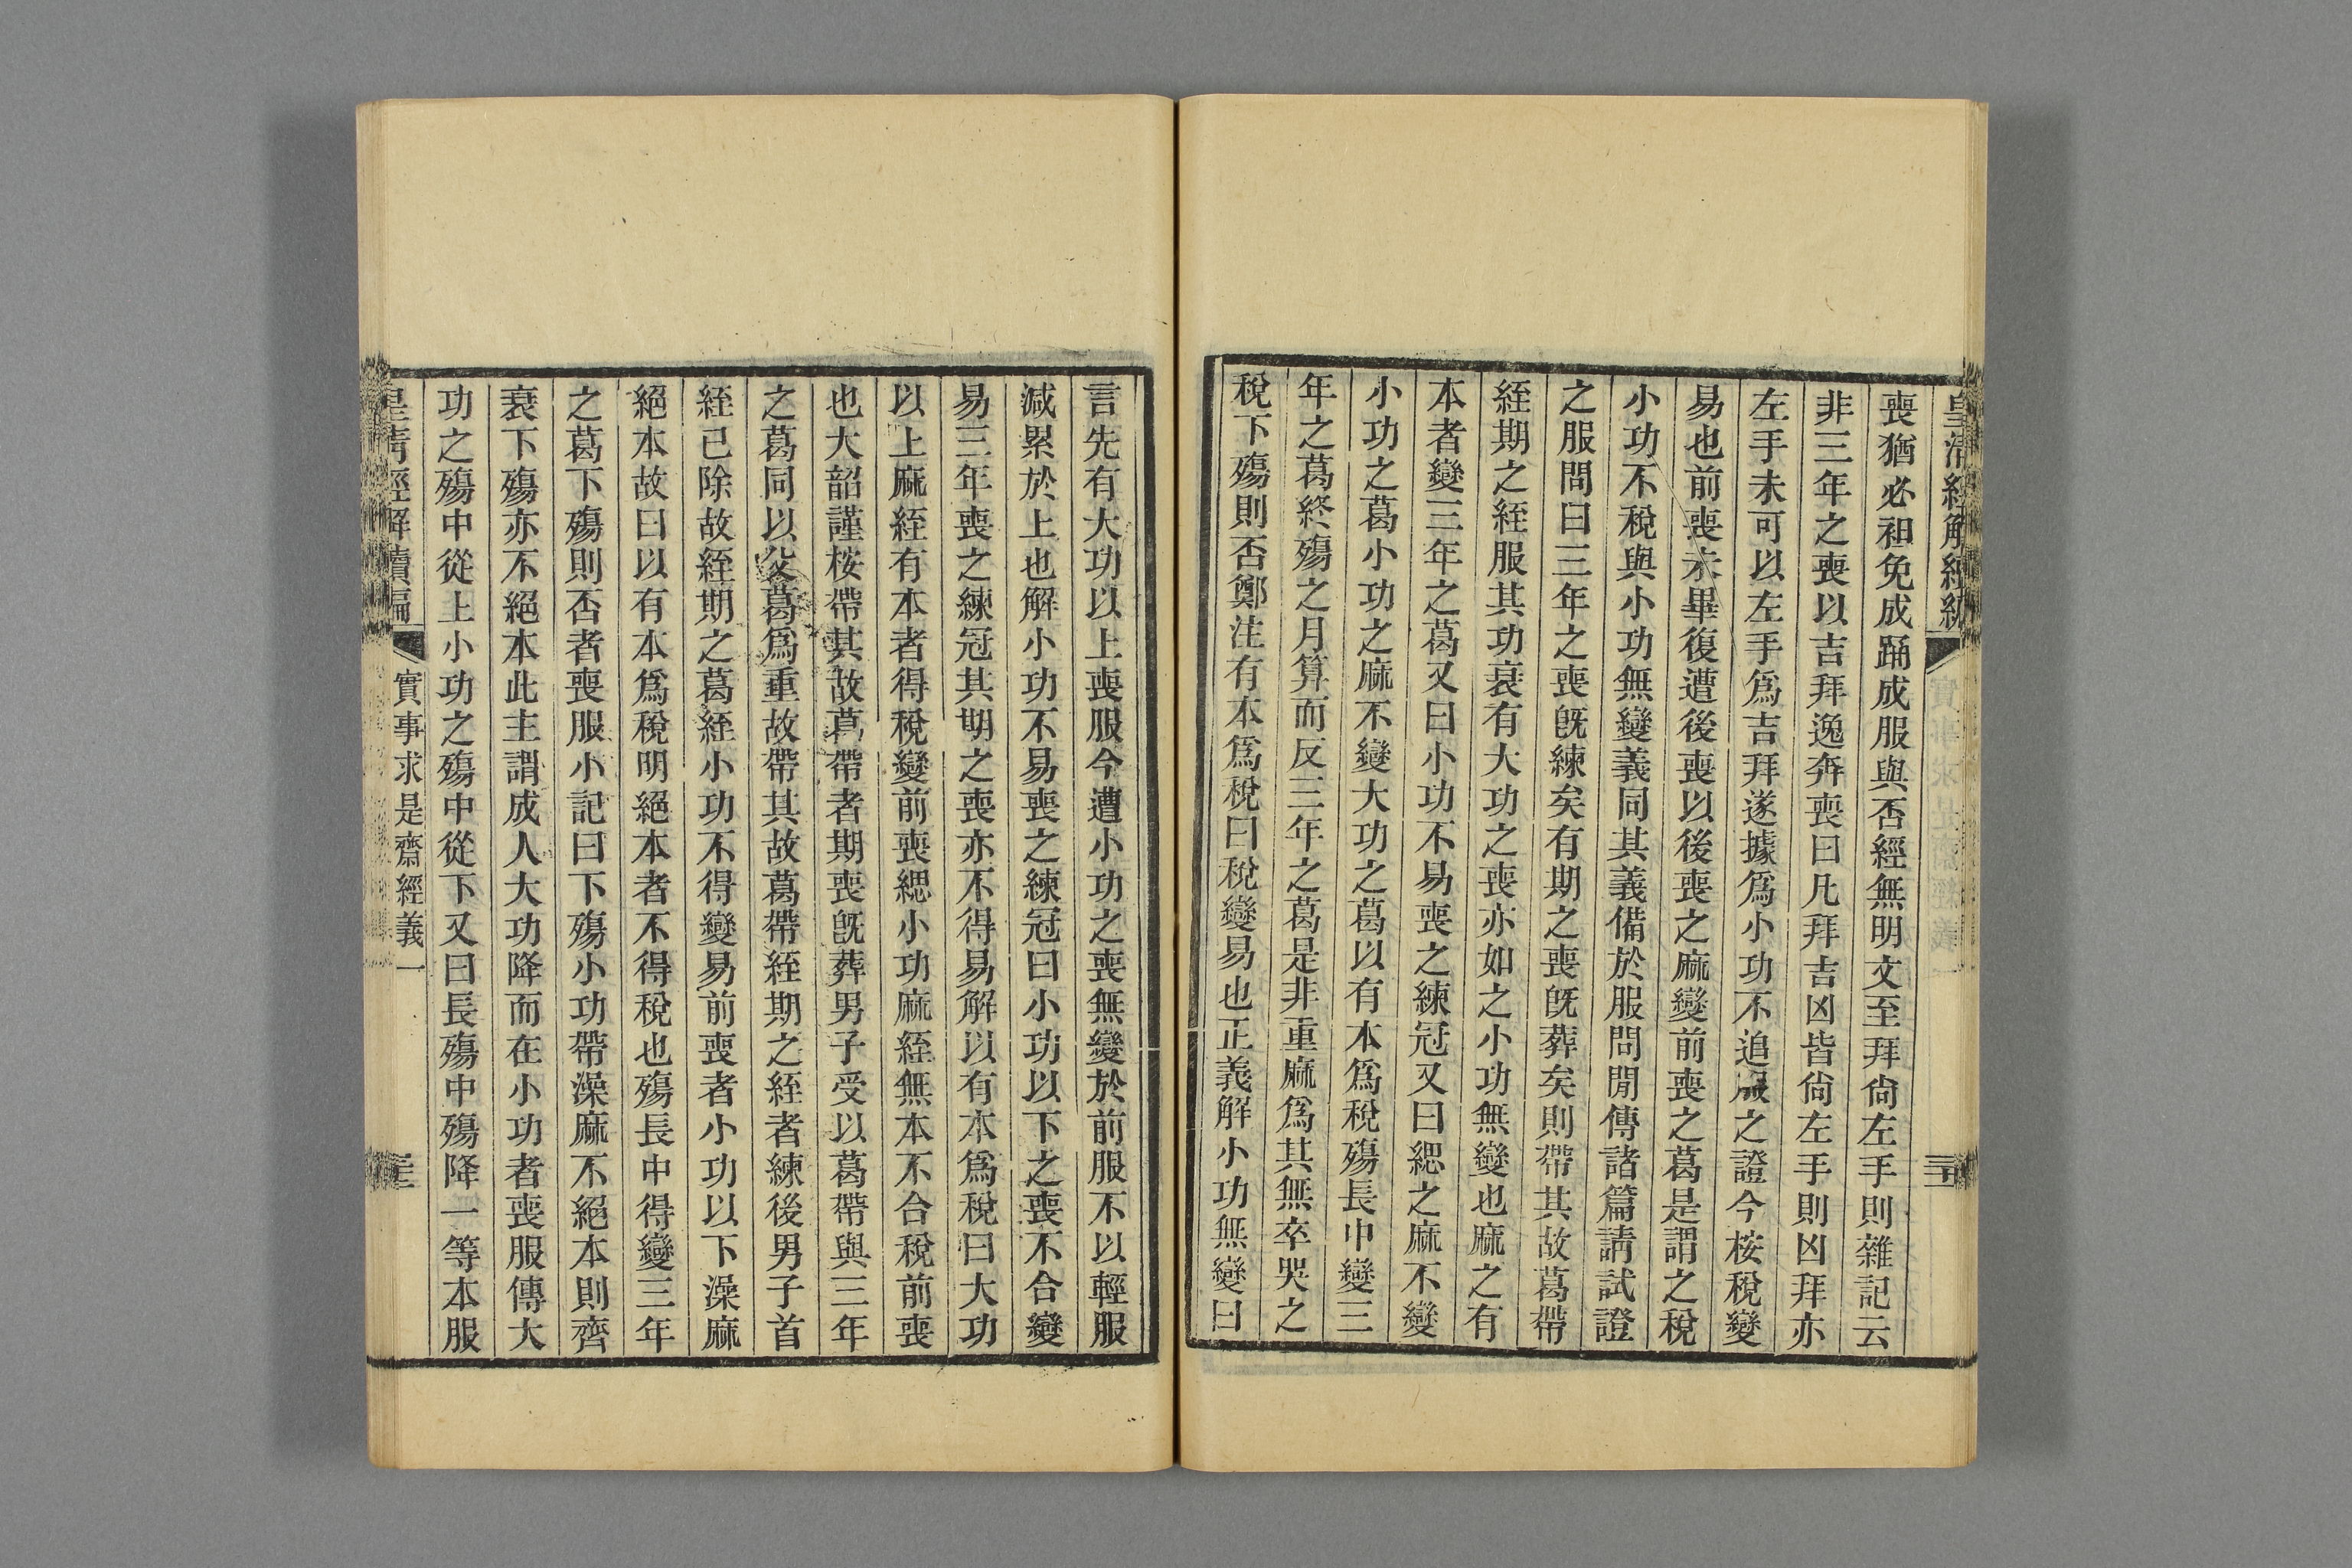 喪猶必袒免成踊成服與否經無明文至拜尙左手則雜記云
非三年之喪以吉拜逸奔喪曰凡拜吉凶皆尙左手則凶拜亦
左手未可以左手爲吉拜遂據爲小功不追服之證今桉稅變
易也前喪未畢復遭後喪以後喪之麻變前喪之葛是謂之稅
小功不稅與小功無變義同其義備於服問閒傳諸篇請試證
之服問曰三年之喪旣練矣有期之喪旣葬矣則帶其故葛帶
絰期之絰服其功衰有大功之喪亦如之小功無變也麻之有
本者變三年之葛又曰小功不易喪之練冠又曰緦之麻不變
小功之葛小功之麻不變大功之葛以有本爲稅殤長中變三
年之葛終殤之月算而反三年之葛是非重麻爲其無卒哭之
稅下殤則否鄭注有本爲稅曰稅變易也正義解小功無變曰
言先有大功以上喪服今遭小功之喪無變於前服不以輕服
減累於上也解小功不易喪之練冠曰小功以下之喪不合變
易三年喪之練冠其期之喪亦不得易解以有本爲稅曰大功
以上麻絰有本者得稅變前喪緦小功麻絰無本不合稅前喪
也大韶謹桉帶其故葛帶者期喪旣葬男子受以葛帶與三年
之葛同以父葛爲重故帶其故葛帶絰期之絰者練後男子首
絰已除故絰期之葛絰小功不得變易前喪者小功以下澡麻
絕本故曰以有本爲稅明絕本者不得稅也殤長中得變三年
之葛下殤則否者喪服小記曰下殤小功帶澡麻不絕本則齊
衰下殤亦不絕本此主謂成人大功降而在小功者喪服傳大
功之殤中從上小功之殤中從下又曰長殤中殤降一等本服
皇清經解續編
實事求是齋經義一